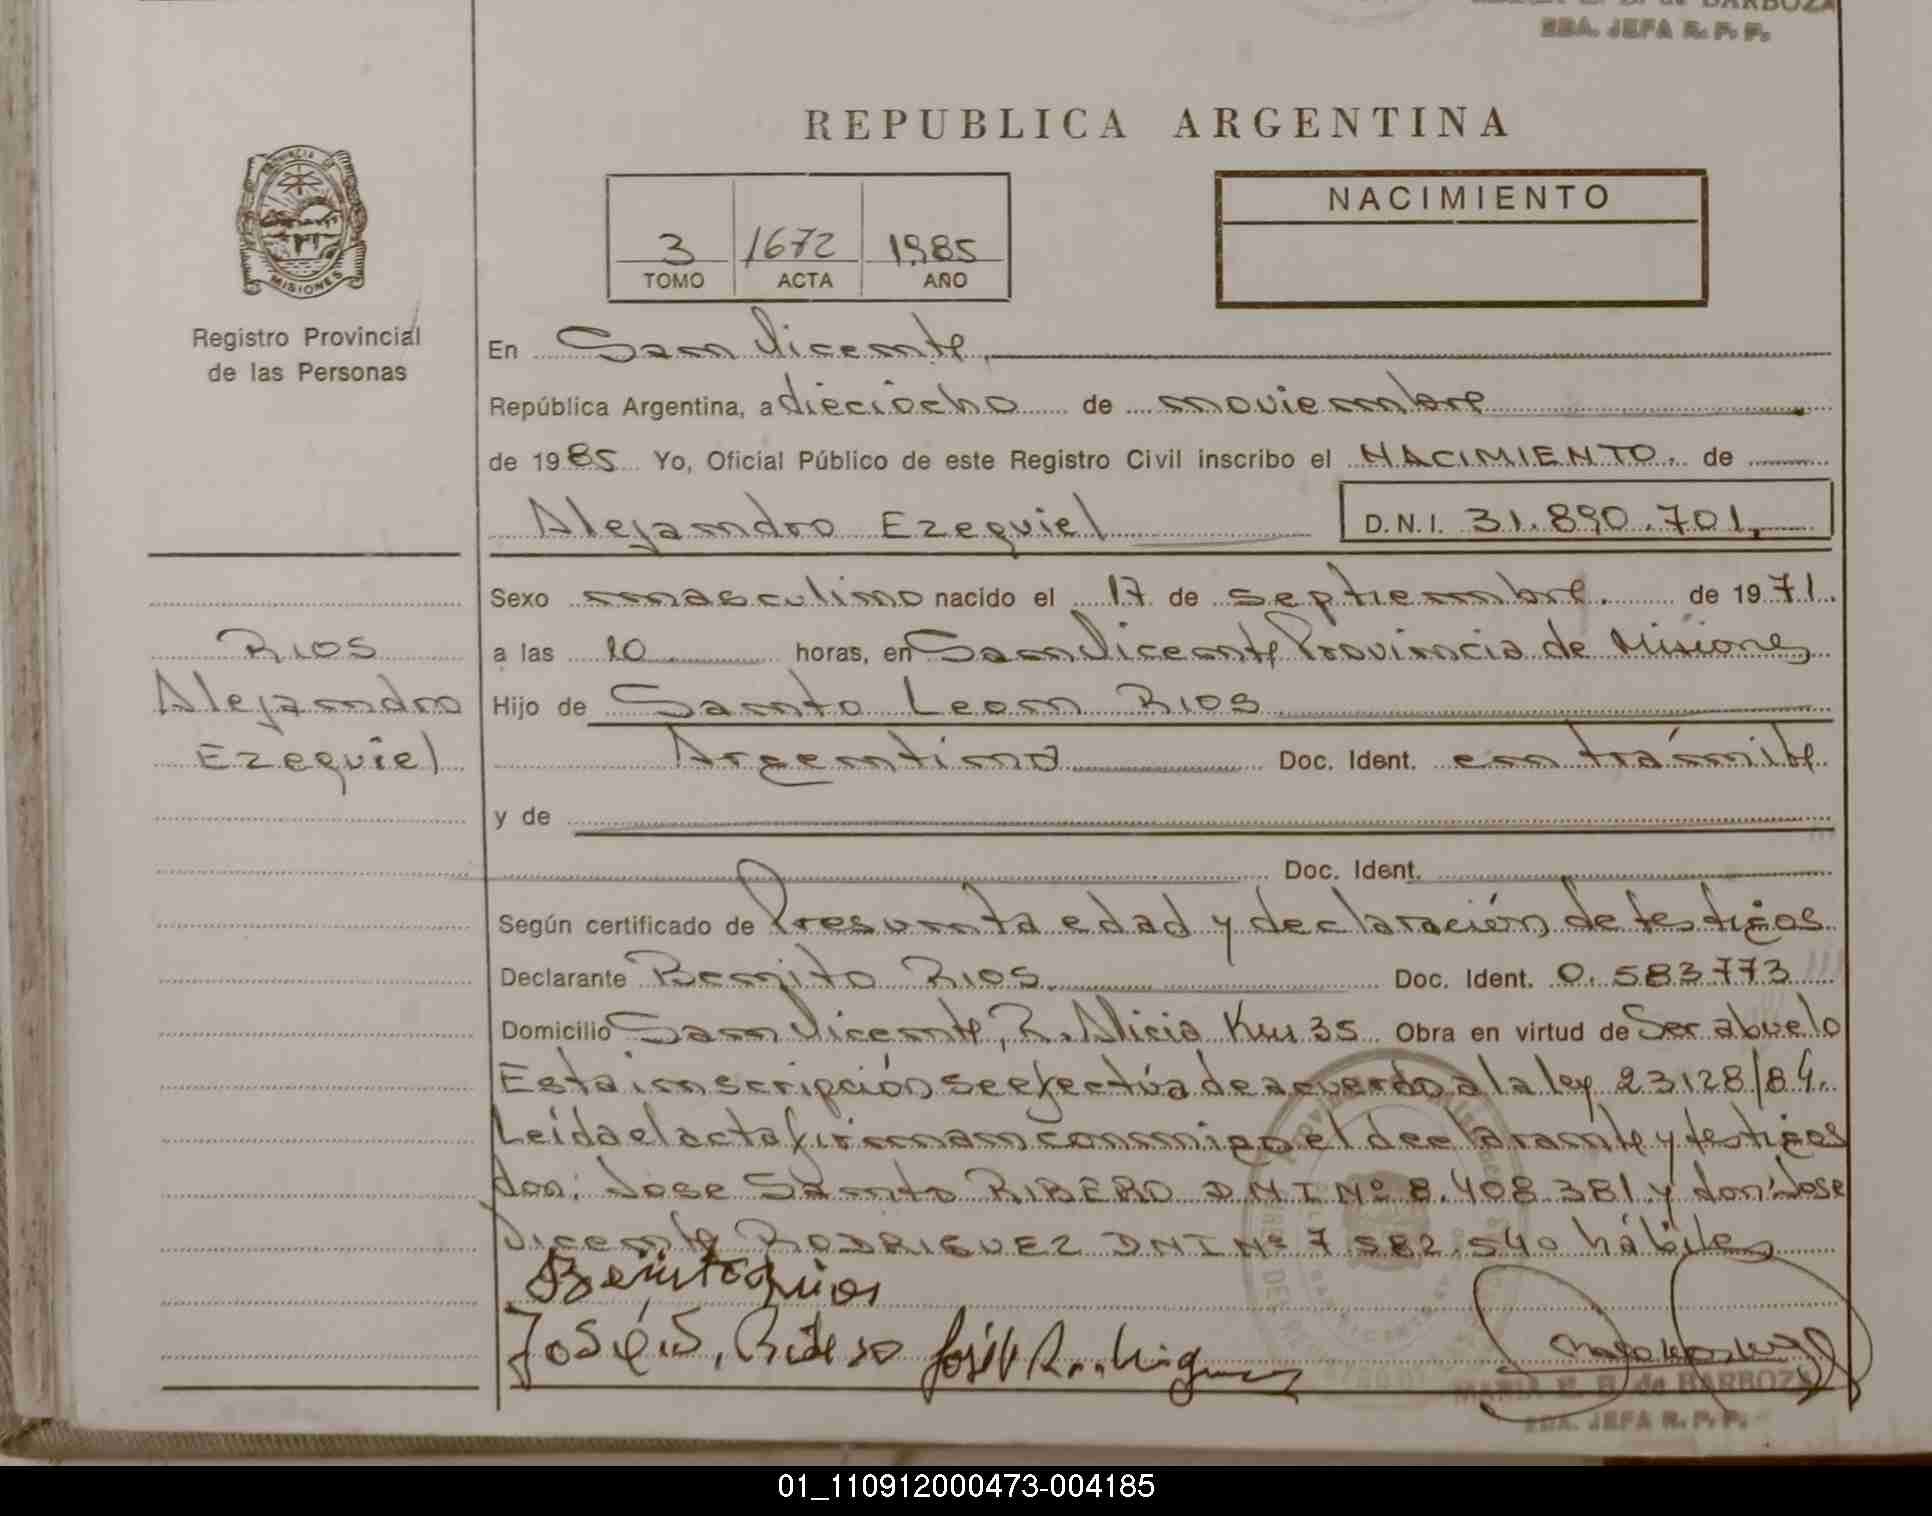 MARIA E. B. de BARBOZA
SBA. JEFA R. P. P.
REPUBLICA ARGENTINA
PROVINCIA DE
MISIONES
Registro Provincial
de las Personas
3 1672 1985
TOMO ACTA AÑO
NACIMIENTO
En San Vicente
República Argentina, a dieciocho de noviembre
de 1985 Yo, Oficial Público de este Registro Civil inscribo el NACIMIENTO. de
Alejandro Ezequiel D.N.I. 31.890.701
RIOS
Alejandro
Ezequiel
Sexo masculino nacido el 17 de septiembre. de 1971.
a las 10 horas, en San Vicente Provincia de Misiones
Hijo de Santo Leon RIOS
Argentino Doc. Ident. en trámite
y de
Doc. Ident.
Según certificado de Presunta edad y declaración de testigos
Declarante Benito RIOS. Doc. Ident. 0.583773
Domicilio San Vicente, R. Alicia Km 35 Obra en virtud de Ser abuelo
Esta inscripción se efectúa de acuerdo a la ley 23128/84.
Leída el acta firman conmigo el declarante y testigos
don: Jose Santo RIBERO DNI Nº 8.408.381 y don: Jose
Vicente RODRIGUEZ DNI Nº 7.582.540 hábiles
Benito Rios
José S. Ribero José V Rodriguez
MARIA E. B. de BARBOZA
SBA. JEFA R. P. P.
01_110912000473-004185